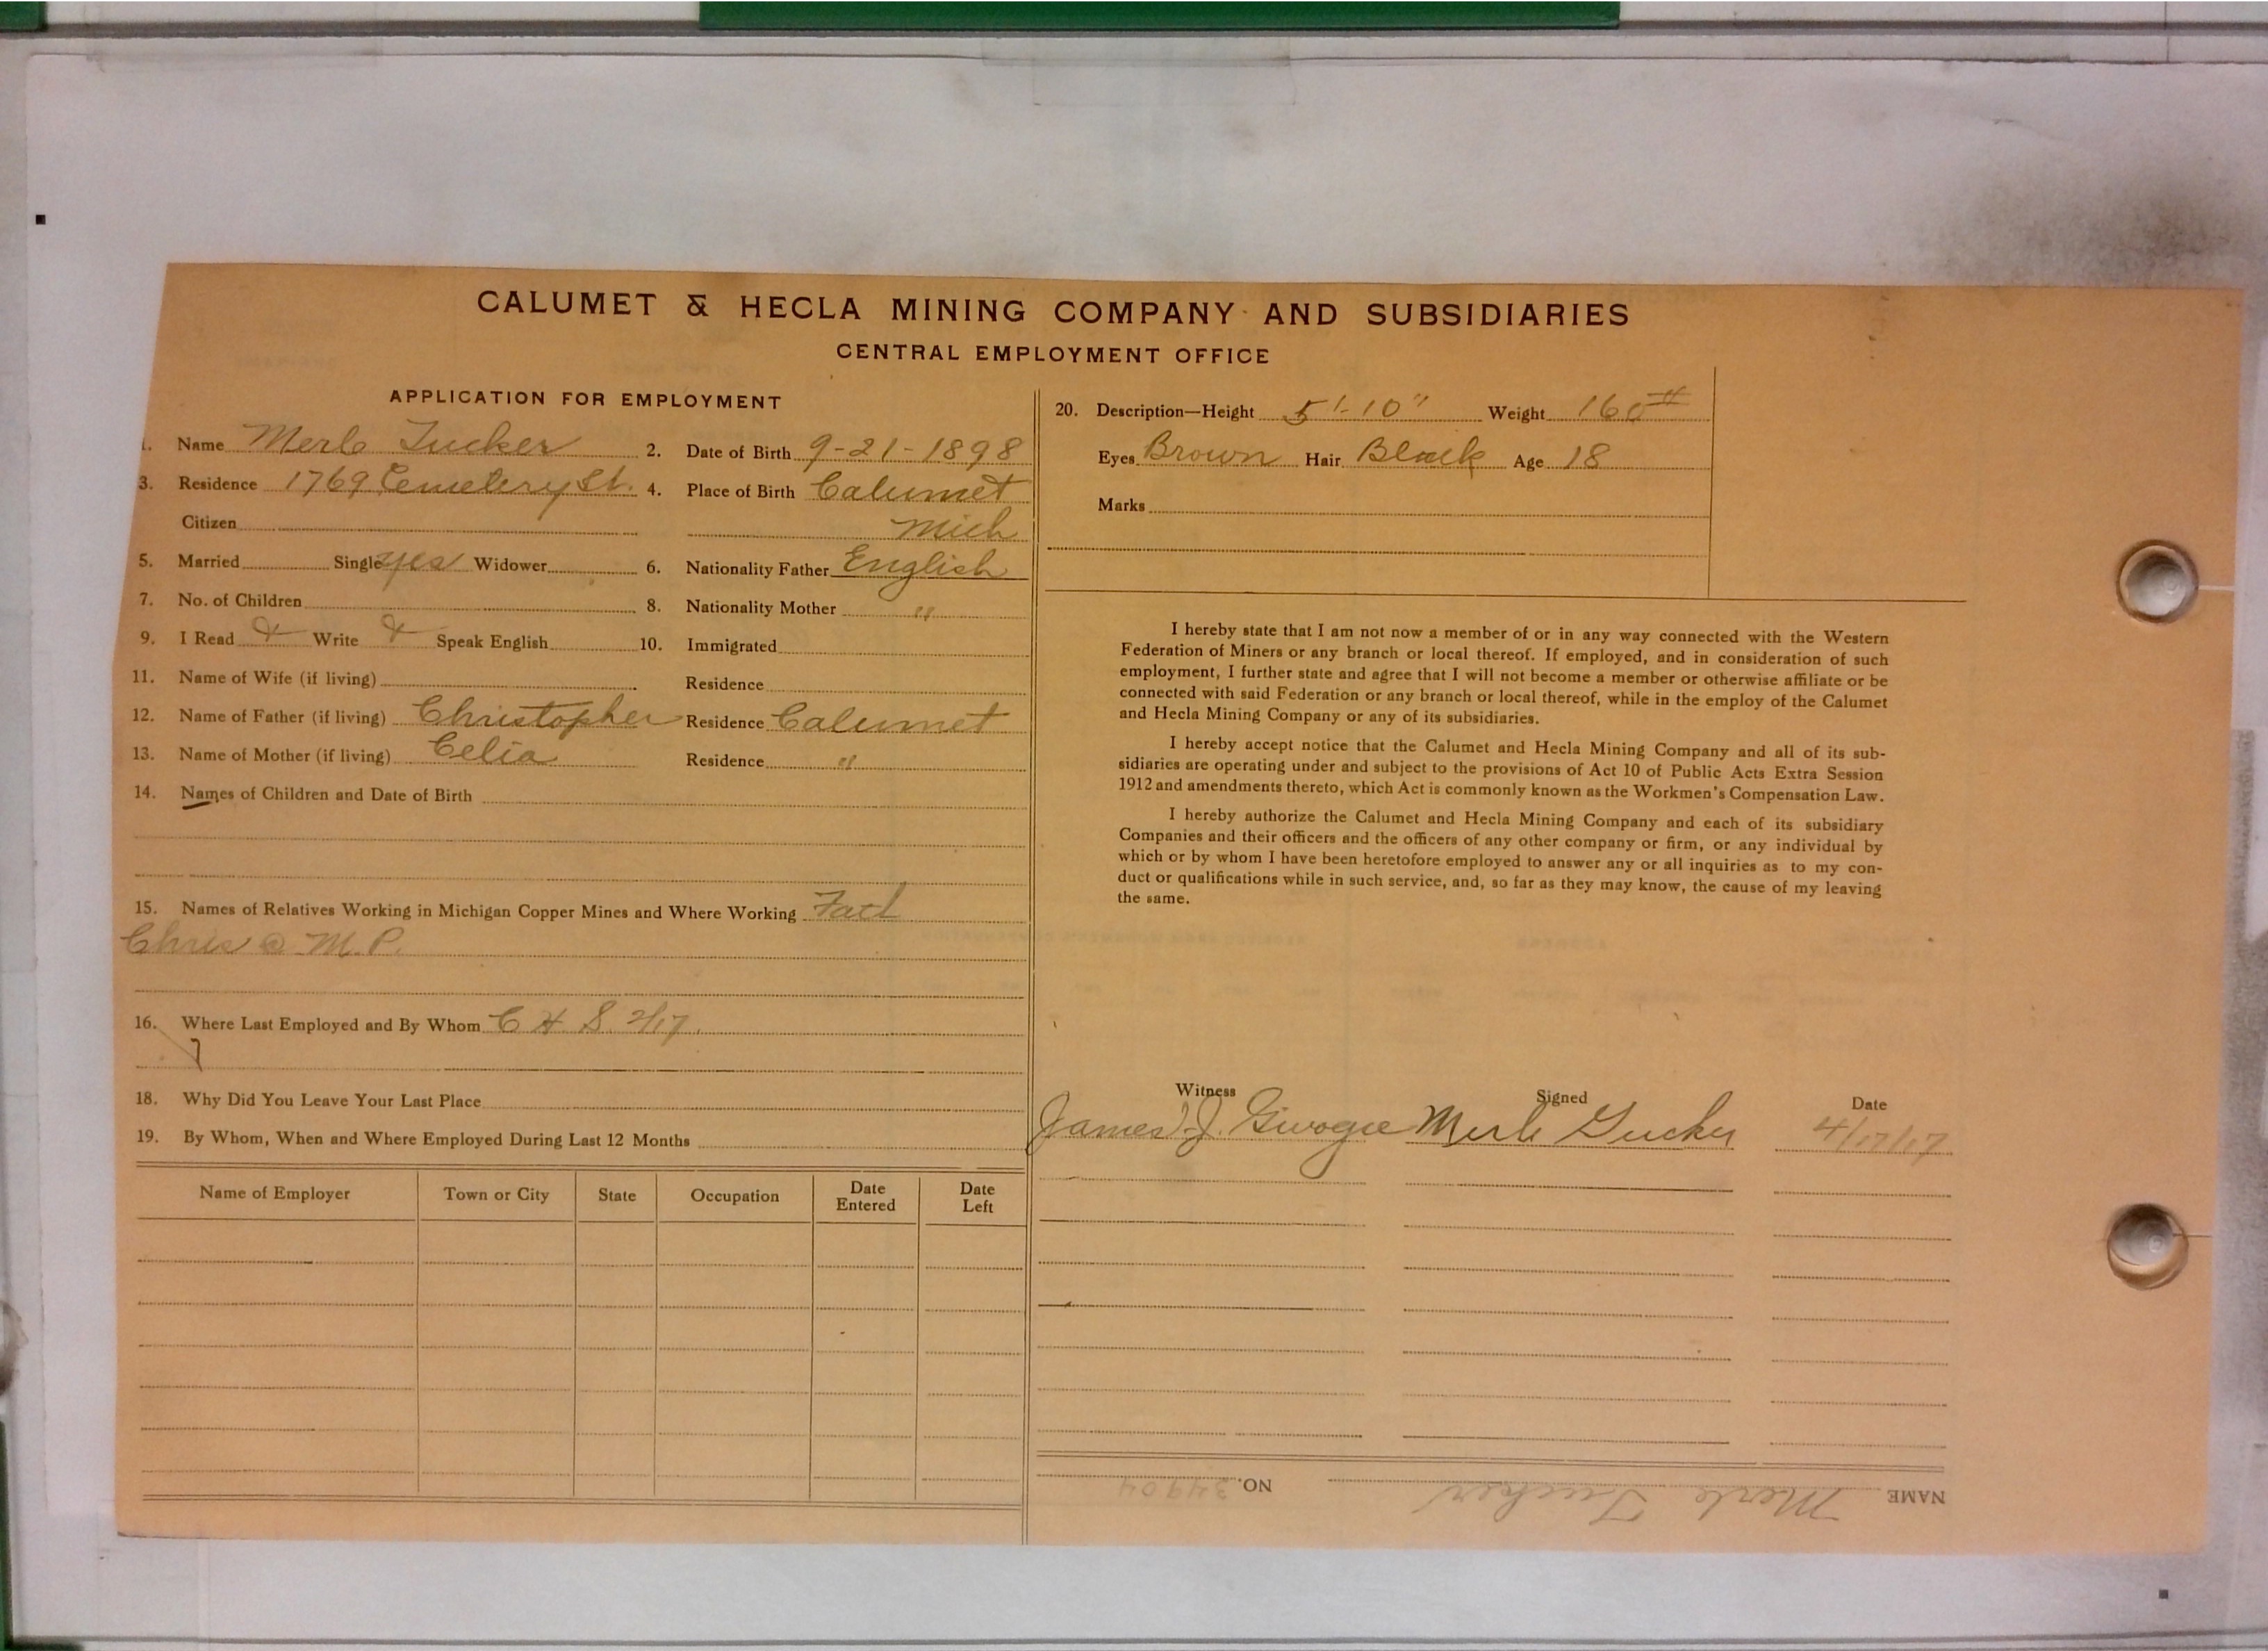 CALUMET & HECLA MINING COMPANY AND SUBSIDIARIES
CENTRAL EMPLOYMENT OFFICE
APPLICATION FOR EMPLOYMENT
1. Name Merle Tucker 2. Date of Birth 9-21-1898
3. Residence 1769 Cemetery St. 4. Place of Birth Calumet
Citizen Mich
5. Married Single yes Widower 6. Nationality Father English
7. No. of Children 8. Nationality Mother "
9. I Read Write Speak English 10. Immigrated
11. Name of Wife (if living) Residence
12. Name of Father (if living) Christopher Residence Calumet
13. Name of Mother (if living) Celia Residence "
14. Names of Children and Date of Birth
15. Names of Relatives Working in Michigan Copper Mines and Where Working Fath
Chris @ M.P.
16. Where Last Employed and By Whom C H S. 2/17.
18. Why Did You Leave Your Last Place
19. By Whom, When and Where Employed During Last 12 Months
Name of Employer Town or City State Occupation Date Entered Date Left
20. Description—Height 5'-10" Weight 160#
Eyes Brown Hair Black Age 18
Marks
I hereby state that I am not now a member of or in any way connected with the Western
Federation of Miners or any branch or local thereof. If employed, and in consideration of such
employment, I further state and agree that I will not become a member or otherwise affiliate or be
connected with said Federation or any branch or local thereof, while in the employ of the Calumet
and Hecla Mining Company or any of its subsidiaries.
I hereby accept notice that the Calumet and Hecla Mining Company and all of its sub-
sidiaries are operating under and subject to the provisions of Act 10 of Public Acts Extra Session
1912 and amendments thereto, which Act is commonly known as the Workmen's Compensation Law.
I hereby authorize the Calumet and Hecla Mining Company and each of its subsidiary
Companies and their officers and the officers of any other company or firm, or any individual by
which or by whom I have been heretofore employed to answer any or all inquiries as to my con-
duct or qualifications while in such service, and, so far as they may know, the cause of my leaving
the same.
Witness Signed Date
James J. Merle Tucker 4/17/17
NAME Merle Tucker NO. 34904